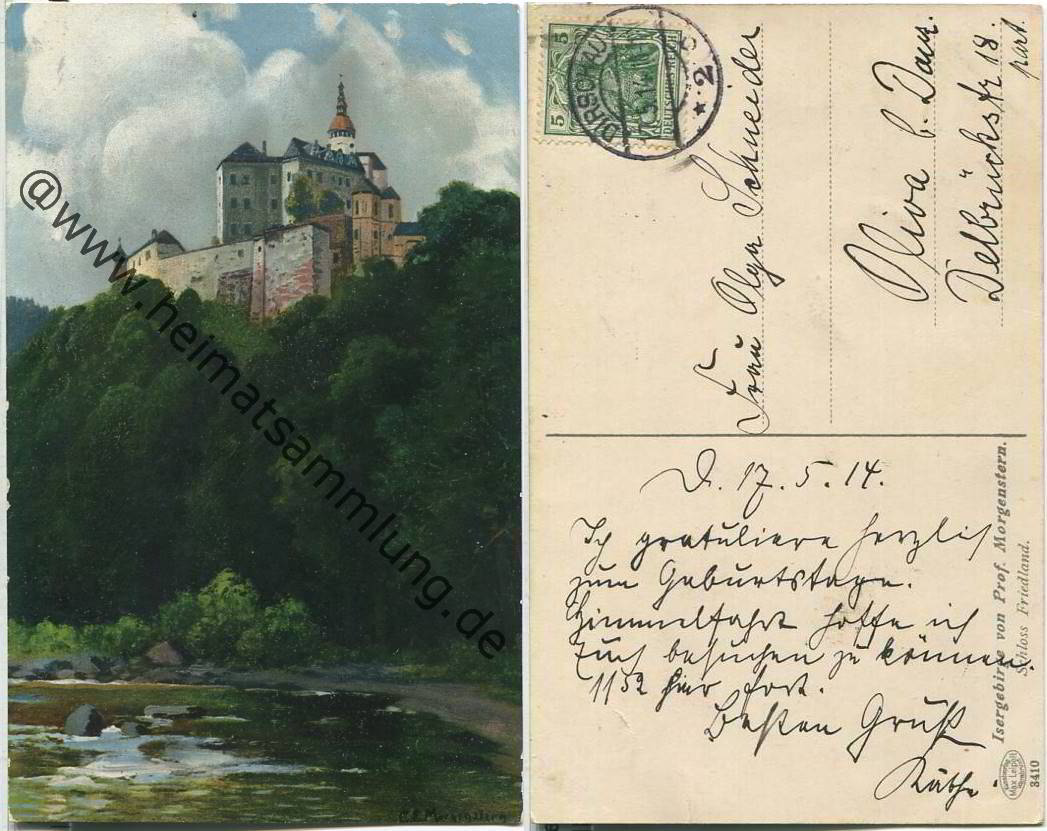 @www.heimatsammlung.de
C. E. Morgenstern
5 5
DEUTSCHES REICH
DIRSCHAU
** 2 c
Frau Olga Schneider
Oliva b. Danz.
Delbrückstr 18
part.
D. 17. 5. 14.
Ich gratuliere herzlich
zum Geburtstage.
Himmelfahrt hoffe ich
Euch besuchen zu können.
1152 hier fort.
Besten Gruß
Käthe
Isergebirge von Prof. Morgenstern.
Schloss Friedland.
Max Leipelt
3410